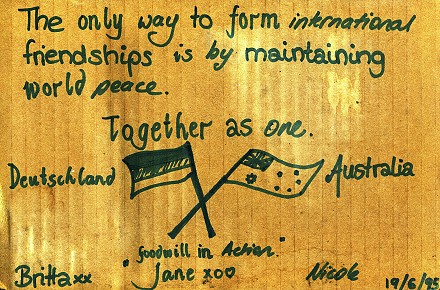 The only way to form international
friendships is by maintaining
world peace.
Together as one.
Deutschland
Australia
"Goodwill in Action."
Britta xx
Jane xo♡
Nicole
19/6/95